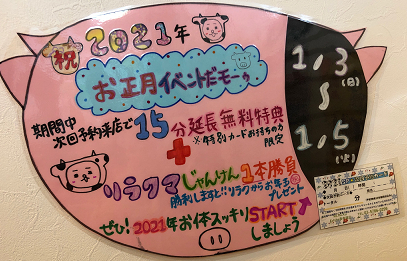 祝 2021年
お正月イベントだモーゥ
期間中
次回予約来店で15分延長無料特典
※特別カードお持ちの方
限定
+
リラクマじゃんけん1本勝負
勝利しますと!!リラクからお年玉
プレゼント
ぜひ!2021年お体スッキリSTART
しましょう
1.3
(日)
〜
1.5
(火)